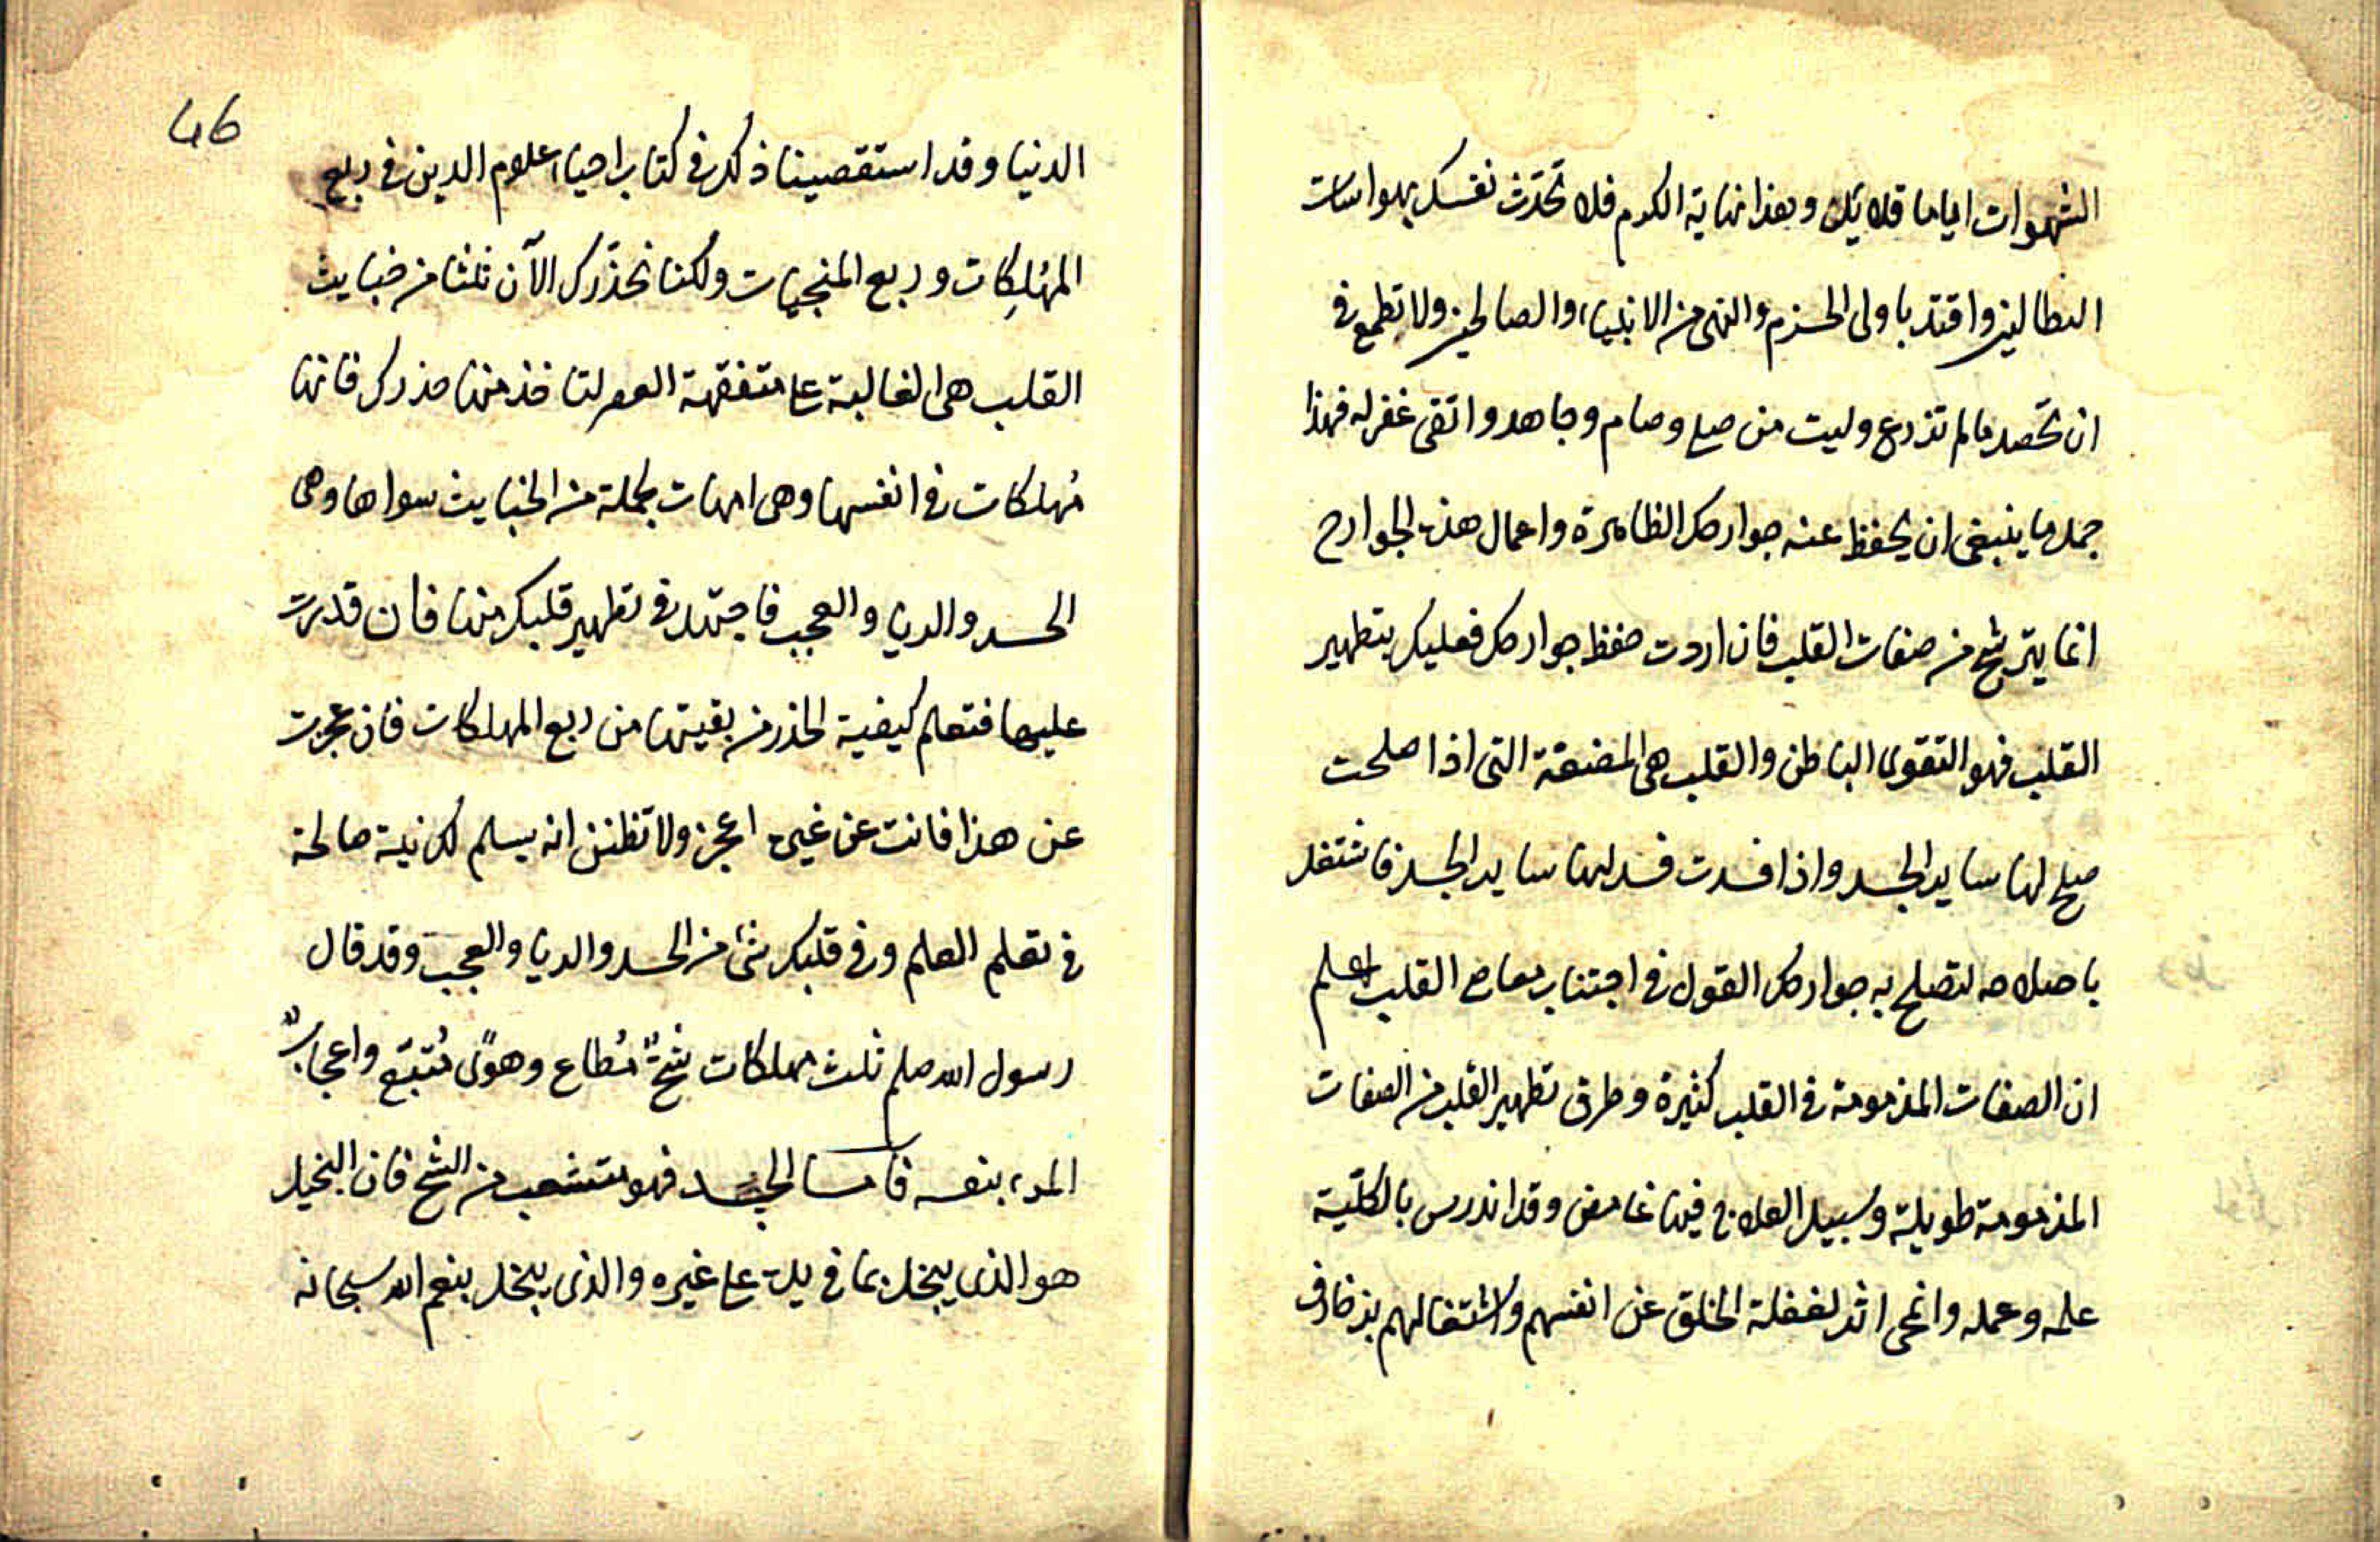 الشهوات اياما قلايل وهذا نهاية الكرم فلا تحدث نفسك بهواسات
البطالين واقتد باولى الحزم والنهى من الانبياء والصالحين ولا تطمع فى
ان تحصد ما لم تزرع وليت من صلى وصام وجاهد واتقى غفر له فهذا
جمل ما ينبغى ان يحفظ عنه جوارحك الظاهرة واعمال هذه الجوارح
انما يترشح من صفات القلب فان اردت حفظ جوارحك فعليك بتطهير
القلب فهو التقوى الباطن والقلب هى المضغة التى اذا صلحت
صلح لها ساير الجسد واذا فسدت فسد لها ساير الجسد فاشتغل
باصلاحه لتصلح به جوارحك القول فى اجتناب معاصى القلب اعلم
ان الصفات المذمومة فى القلب كثيرة وطرق تطهير القلب من الصفات
المذمومة طويلة وسبيل العلاج فيها غامض وقد اندرس بالكلّية
علمه وعمله وانمحى اثره لغفلة الخلق عن انفسهم واشتغالهم بزخارف
46
الدنيا وقد استقصينا ذلك فى كتاب احياء علوم الدين فى ربع
المهلكات وربع المنجيات ولكنا نحذّرك الآن ثلثا من خبايث
القلب هى الغالبة على متفقهة العصر لتاخذ منها حذرك فانها
مُهلكات فى انفسها وهى امهات لجملة من الخبايث سواها وهى
الحسد والريا والعجب فاجتهد فى تطهير قلبك منها فان قدرت
عليها فتعلم كيفية الحذر من بقيتها من ربع المهلكات فان عجزت
عن هذا فانت عن غيره اعجز ولا تظنن انه يسلم لك نية صالحة
فى تعلم العلم وفى قلبك شئ من الحسد والريا والعجب وقد قال
رسول الله صلعم ثلث مهلكات شحٌّ مُطاع وهوًى مُتبَع واعجابُ
المرء بنفسه فاما الحسد فهو متشعب من الشح فان البخيل
هو الذى يبخل بما فى يده على غيره والذى يبخل بنعم الله سبحانه